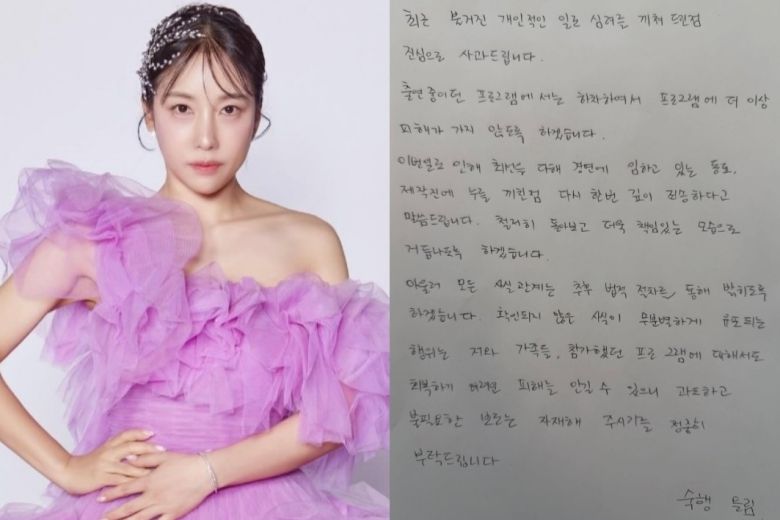 최근 불거진 개인적인 일로 심려를 끼쳐 드린점
진심으로 사과드립니다.
출연 중이던 프로그램에서는 하차하여서 프로그램에 더 이상
피해가 가지 않도록 하겠습니다.
이번일로 인해 최선을 다해 경연에 임하고 있는 동료,
제작진에 누를 끼친점 다시 한번 깊이 죄송하다고
말씀드립니다. 철저히 돌아보고 더욱 책임있는 모습으로
거듭나도록 하겠습니다.
아울러 모든 사실관계는 추후 법적 절차를 통해 밝히도록
하겠습니다. 확인되지 않은 사실이 무분별하게 유포되는
행위는 저와 가족들, 참가했던 프로그램에 대해서도
회복하기 어려운 피해를 안길 수 있으니 과도하고
불필요한 보도는 자제해 주시기를 정중히
부탁드립니다
숙행 드림